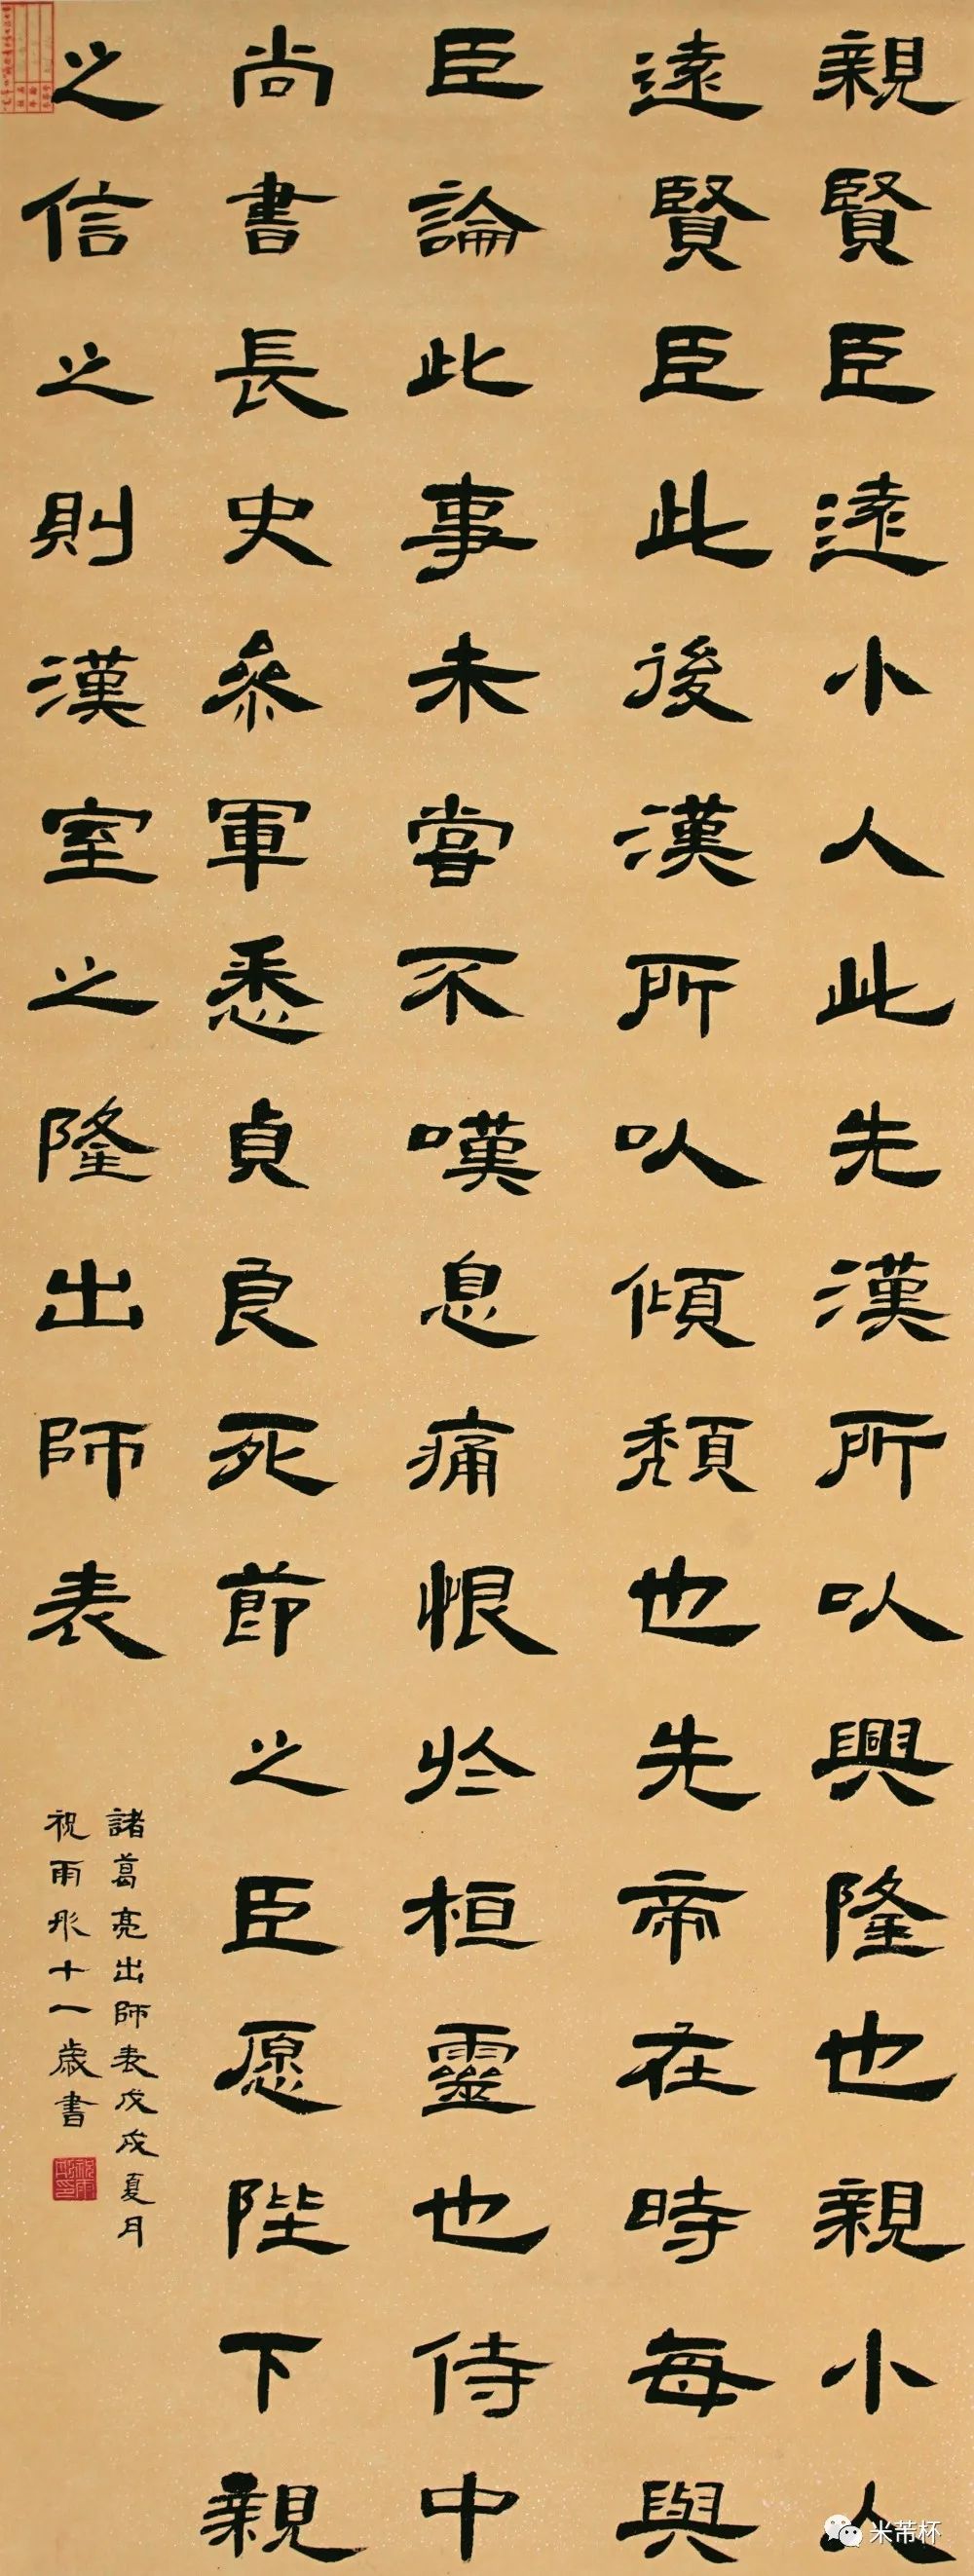 親賢臣遠小人此先漢所以興隆也親小人
遠賢臣此後漢所以傾頹也先帝在時每與
臣論此事未嘗不嘆息痛恨於桓靈也侍中
尚書長史參軍悉貞良死節之臣愿陛下親
之信之則漢室之隆出師表
諸葛亮出師表戊戌夏月
祝雨彤十一歲書
米芾杯